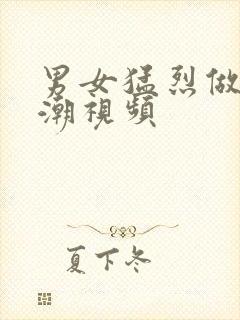 男女猛烈做
潮視頻
夏下冬